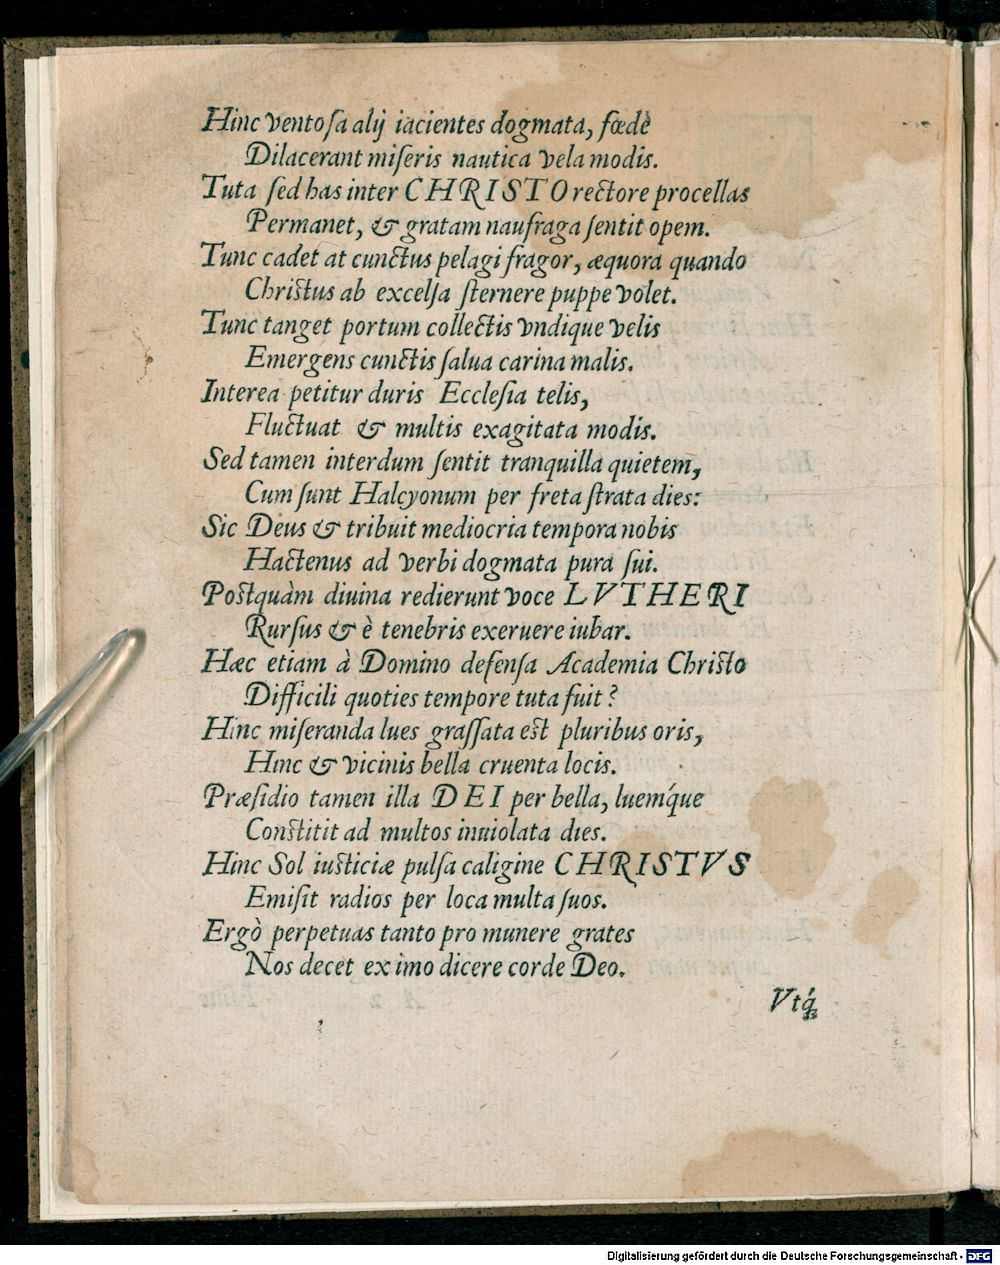 Hinc ventoſa alij iacientes dogmata, fœdè
Dilacerant miſeris nautica vela modis.
Tuta ſed has inter CHRISTO rectore procellas
Permanet, & gratam naufraga ſentit opem.
Tunc cadet at cunctus pelagi fragor, æquora quando
Chriſtus ab excelſa ſternere puppe volet.
Tunc tanget portum collectis vndique velis
Emergens cunctis ſalua carina malis.
Interea petitur duris Eccleſia telis,
Fluctuat & multis exagitata modis.
Sed tamen interdum ſentit tranquilla quietem,
Cum ſunt Halcyonum per freta ſtrata dies:
Sic Deus & tribuit mediocria tempora nobis
Hactenus ad verbi dogmata pura ſui.
Poſtquàm diuina redierunt voce LVTHERI
Rurſus & è tenebris exeruere iubar.
Hæc etiam à Domino defenſa Academia Chriſto
Difficili quoties tempore tuta fuit?
Hinc miſeranda lues graſſata eſt pluribus oris,
Hinc & vicinis bella cruenta locis.
Præſidio tamen illa DEI per bella, luemq́ue
Conſtitit ad multos inuiolata dies.
Hinc Sol iuſticiæ pulſa caligine CHRISTVS
Emiſit radios per loca multa ſuos.
Ergò perpetuas tanto pro munere grates
Nos decet ex imo dicere corde Deo.
Vtq́;
Digitalisierung gefördert durch die Deutsche Forschungsgemeinschaft - DFG